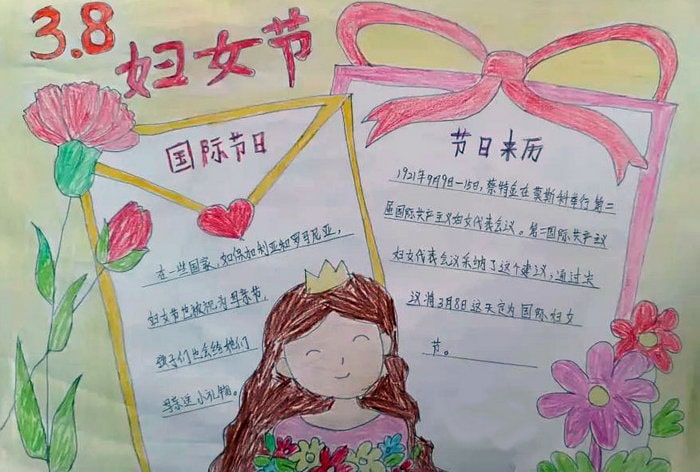 3.8
妇女节
国际节日
在一些国家，如保加利亚和罗马尼亚，
妇女节也被视为母亲节，
孩子们也会给她们
母亲送小礼物。
节日来历
1921年9月9日—15日，蔡特金在莫斯科举行第二
届国际共产主义妇女代表会议。第二国际共产主义
妇女代表会议采纳了这个建议，通过决
议将3月8日这天定为国际妇女
节。